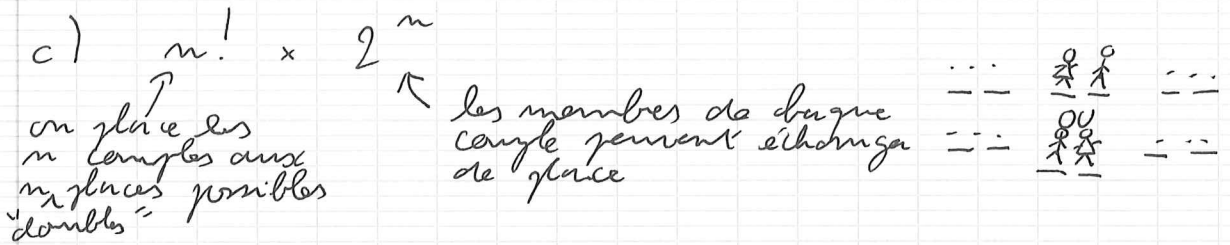 c) n! × 2^n
on place les
n couples aux
n places possibles
"doubles"
les membres de chaque
couple peuvent échanger
de place
OU